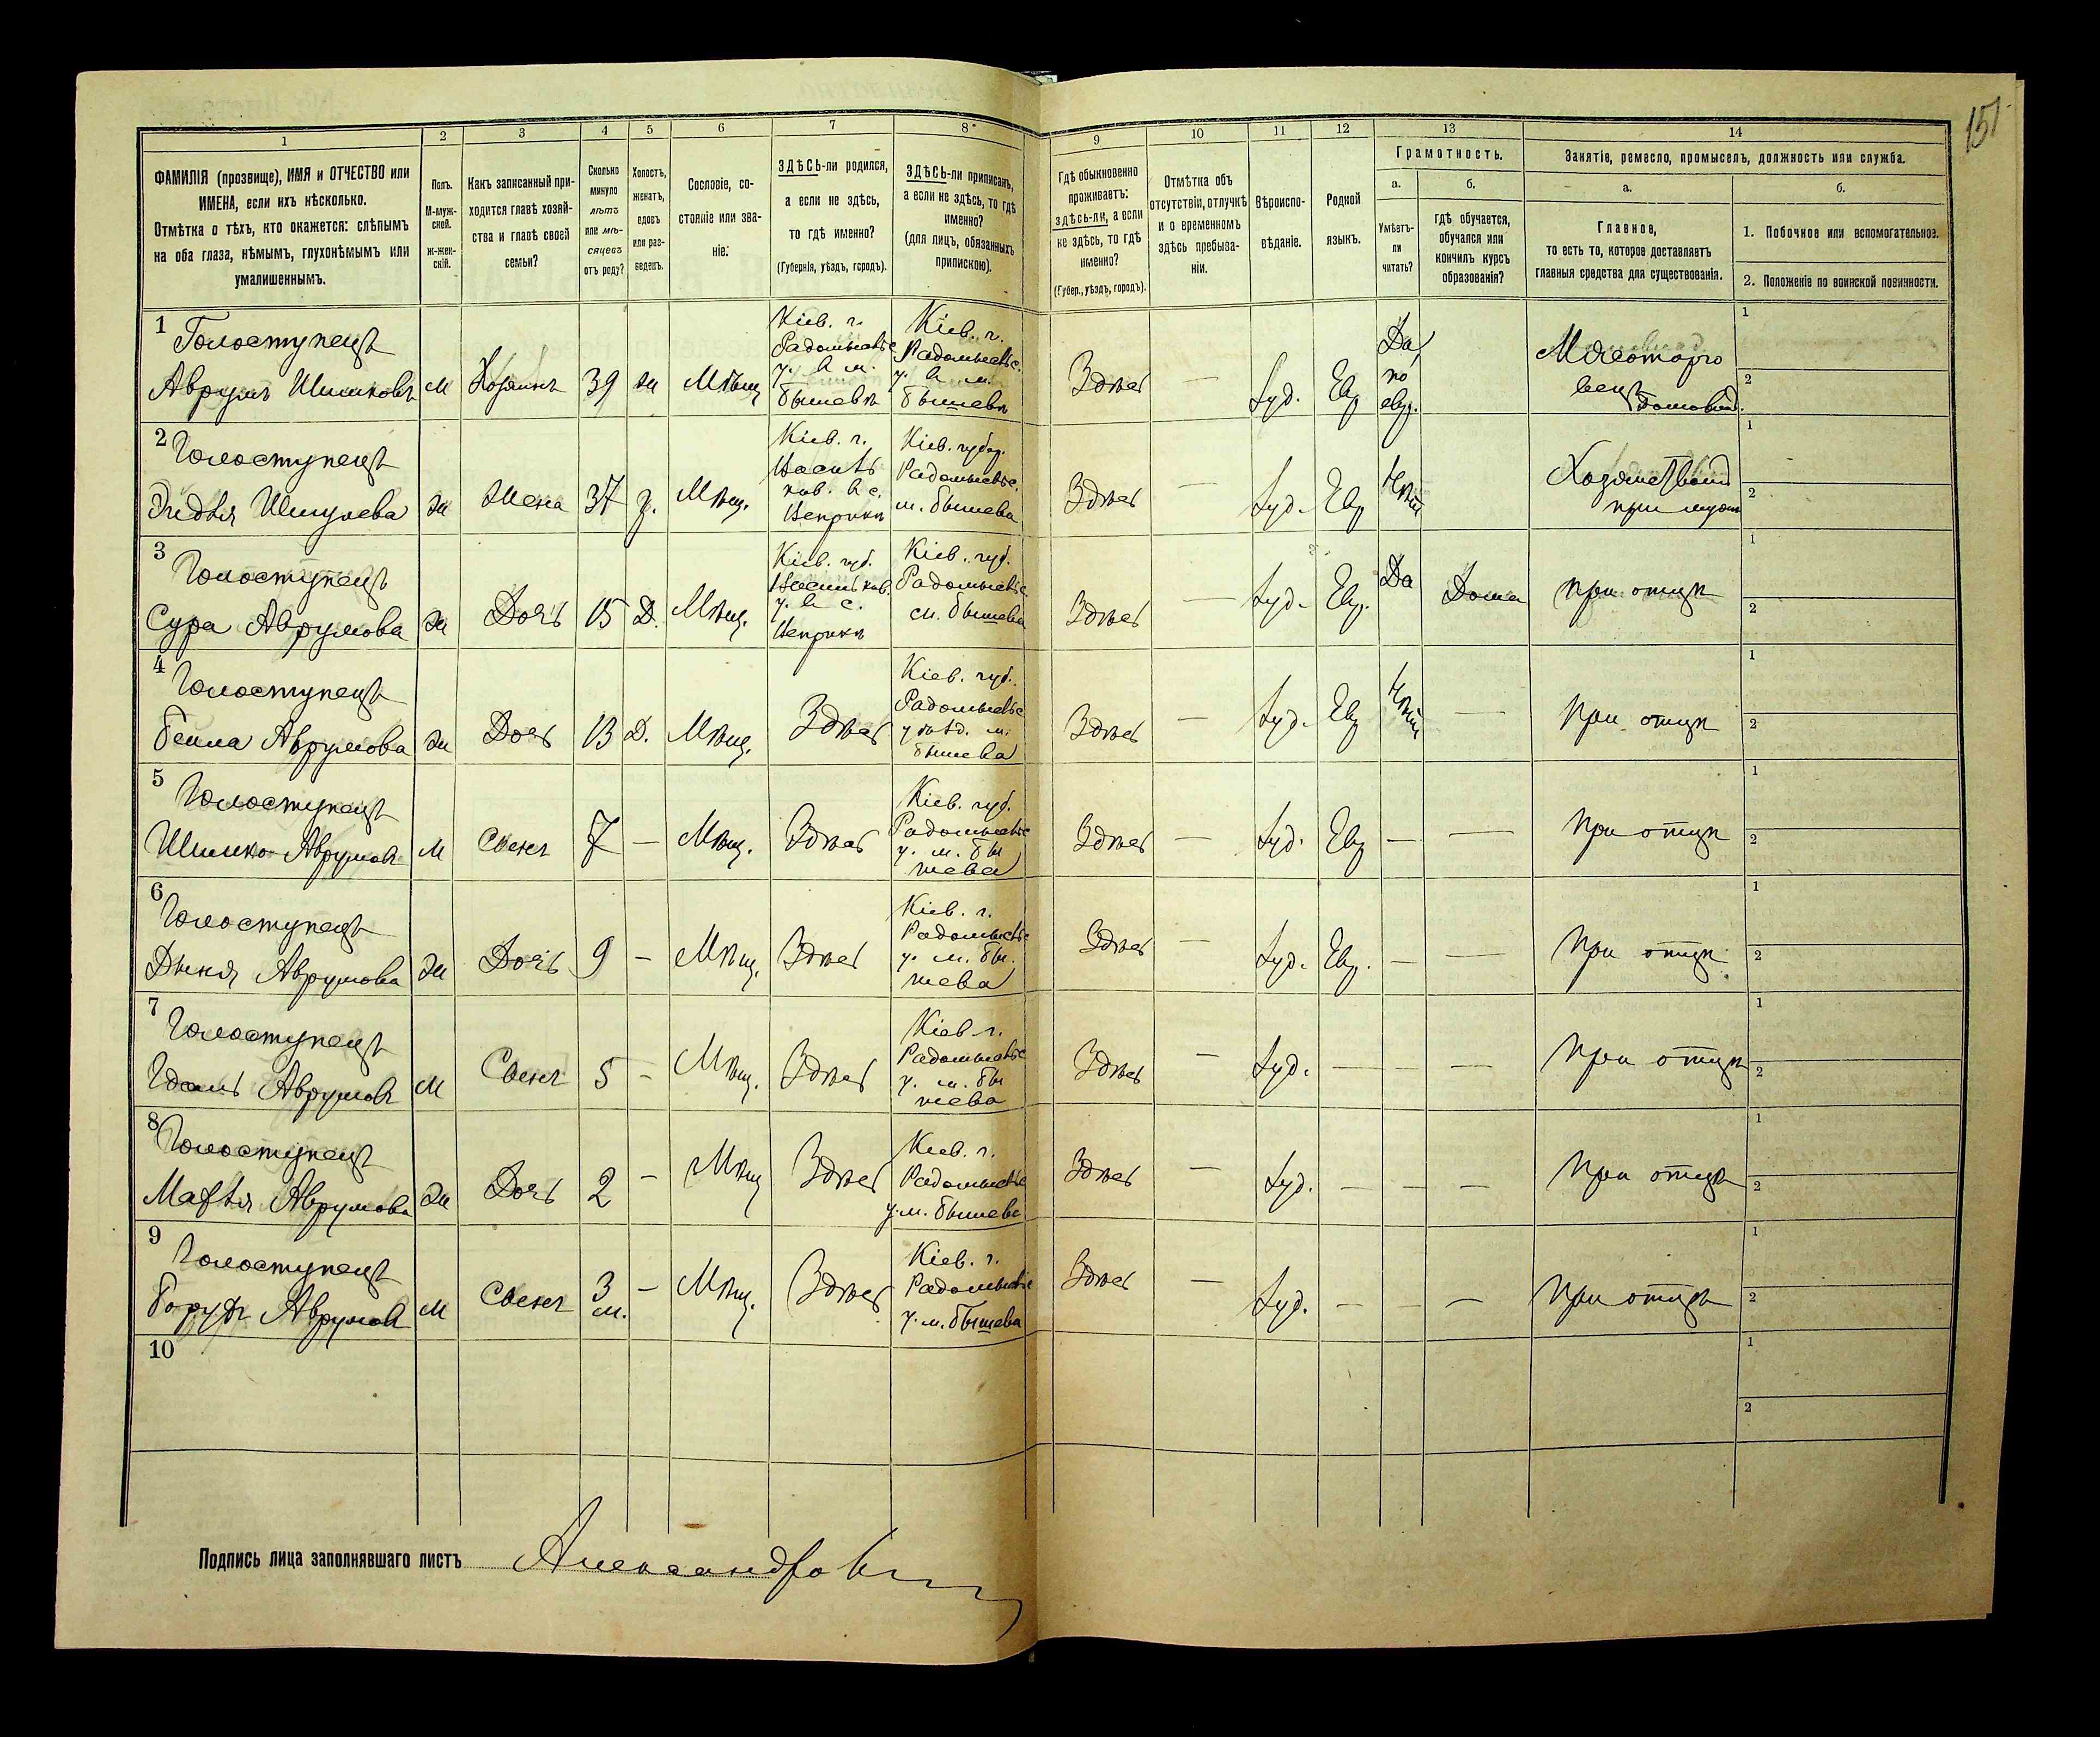 151
1 2 3 4 5 6 7 8 9 10 11 12 13 14
ФАМИЛІЯ (прозвище), ИМЯ и ОТЧЕСТВО или
ИМЕНА, если ихъ нѣсколько.
Отмѣтка о тѣхъ, кто окажется: слѣпымъ
на оба глаза, нѣмымъ, глухонѣмымъ или
умалишеннымъ.
Полъ.
М-муж-
ской.
ж-жен-
скій.
Какъ записанный при-
ходится главѣ хозяй-
ства и главѣ своей
семьи?
Сколько
минуло
лѣтъ
или мѣ-
сяцевъ
отъ роду?
Холостъ,
женатъ,
вдовъ
или раз-
веденъ.
Сословіе, со-
стояніе или зва-
ніе:
ЗДѢСЬ-ли родился,
а если не здѣсь,
то гдѣ именно?
(Губернія, уѣздъ, городъ).
ЗДѢСЬ-ли приписанъ,
а если не здѣсь, то гдѣ
именно?
(для лицъ, обязанныхъ
припискою).
Гдѣ обыкновенно
проживаетъ:
здѣсь-ли, а если
не здѣсь, то гдѣ
именно?
(Губер., уѣздъ, городъ).
Отмѣтка объ
отсутствіи, отлучкѣ
и о временномъ
здѣсь пребыва-
ніи.
Вѣроиспо-
вѣданіе.
Родной
языкъ.
Грамотность.
а.
Умѣетъ-
ли
читать?
б.
гдѣ обучается,
обучался или
кончилъ курсъ
образованія?
Занятіе, ремесло, промыселъ, должность или служба.
а.
Главное,
то есть то, которое доставляетъ
главныя средства для существованія.
б.
1. Побочное или вспомогательное.
2. Положеніе по воинской повинности.
1
Голоступецъ
Аврумъ Шимковъ
М
Хозяинъ
39
ж
Мѣщ
Кіев. г.
Радомысльс
у. в м.
Бышевѣ
Кіев. г.
Радомысльс.
у. в м.
Бышевѣ
Здѣсь
—
Іуд.
Евр
Да,
по
евр.
Мясоторго
вецъ
1
2
2
Голоступецъ
Шмулева
ж
Жена
37
з.
Мѣщ.
Кіев. г.
Василь
ков. в с.
Кіев. губер.
Радомысльс.
м. Бышева
Здѣсь
—
Іуд.
Евр
Нѣт
при муж
1
2
3
Голоступецъ
Сура Аврумова
ж
Дочь
15
Д.
Мѣщ.
Кіев. губ.
Васильков.
у. в с.
Кіев. губ.
Радомысльс
м. Бышева
Здѣсь
—
Іуд.
Евр.
Да
Дома
При отцѣ
1
2
4
Голоступецъ
Бейла Аврумова
ж
Дочь
13
Д.
Мѣщ.
Здѣсь
Кіев. губ.
Радомысльс
уѣзд. м.
Бышева
Здѣсь
—
Іуд.
Евр
Нѣт
—
При отцѣ
1
2
5
Голоступецъ
Шимко Аврумов
М
Сынъ
7
—
Мѣщ.
Здѣсь
Кіев. губ.
Радомысльс
у. м. Бы
шева
Здѣсь
—
Іуд.
Евр
—
—
При отцѣ
1
2
6
Голоступецъ
Дыня Аврумова
ж
Дочь
9
—
Мѣщ.
Здѣсь
Кіев. г.
Радомысльс
у. м. Бы.
шева
Здѣсь
—
Іуд.
Евр.
—
—
При отцѣ
1
2
7
Голоступецъ
Аврумов
М
Сынъ
5
—
Мѣщ.
Здѣсь
Кіев г.
Радомысльс
у. м. Бы
шева
Здѣсь
—
Іуд.
—
—
—
При отцѣ
1
2
8
Голоступецъ
Аврумова
ж
Дочь
2
—
Мѣщ
Здѣсь
Кіев. г.
Радомысльс
у. м. Бышева
Здѣсь
—
Іуд.
—
—
—
При отцѣ
1
2
9
Голоступецъ
Борухъ Аврумов
М
Сынъ
3
м.
—
Мѣщ.
Здѣсь
Кіев. г.
Радомысльс
у. м. Бышева
Здѣсь
—
Іуд.
—
—
—
При отцѣ
1
2
10
1
2
Подпись лица заполнявшаго листъ